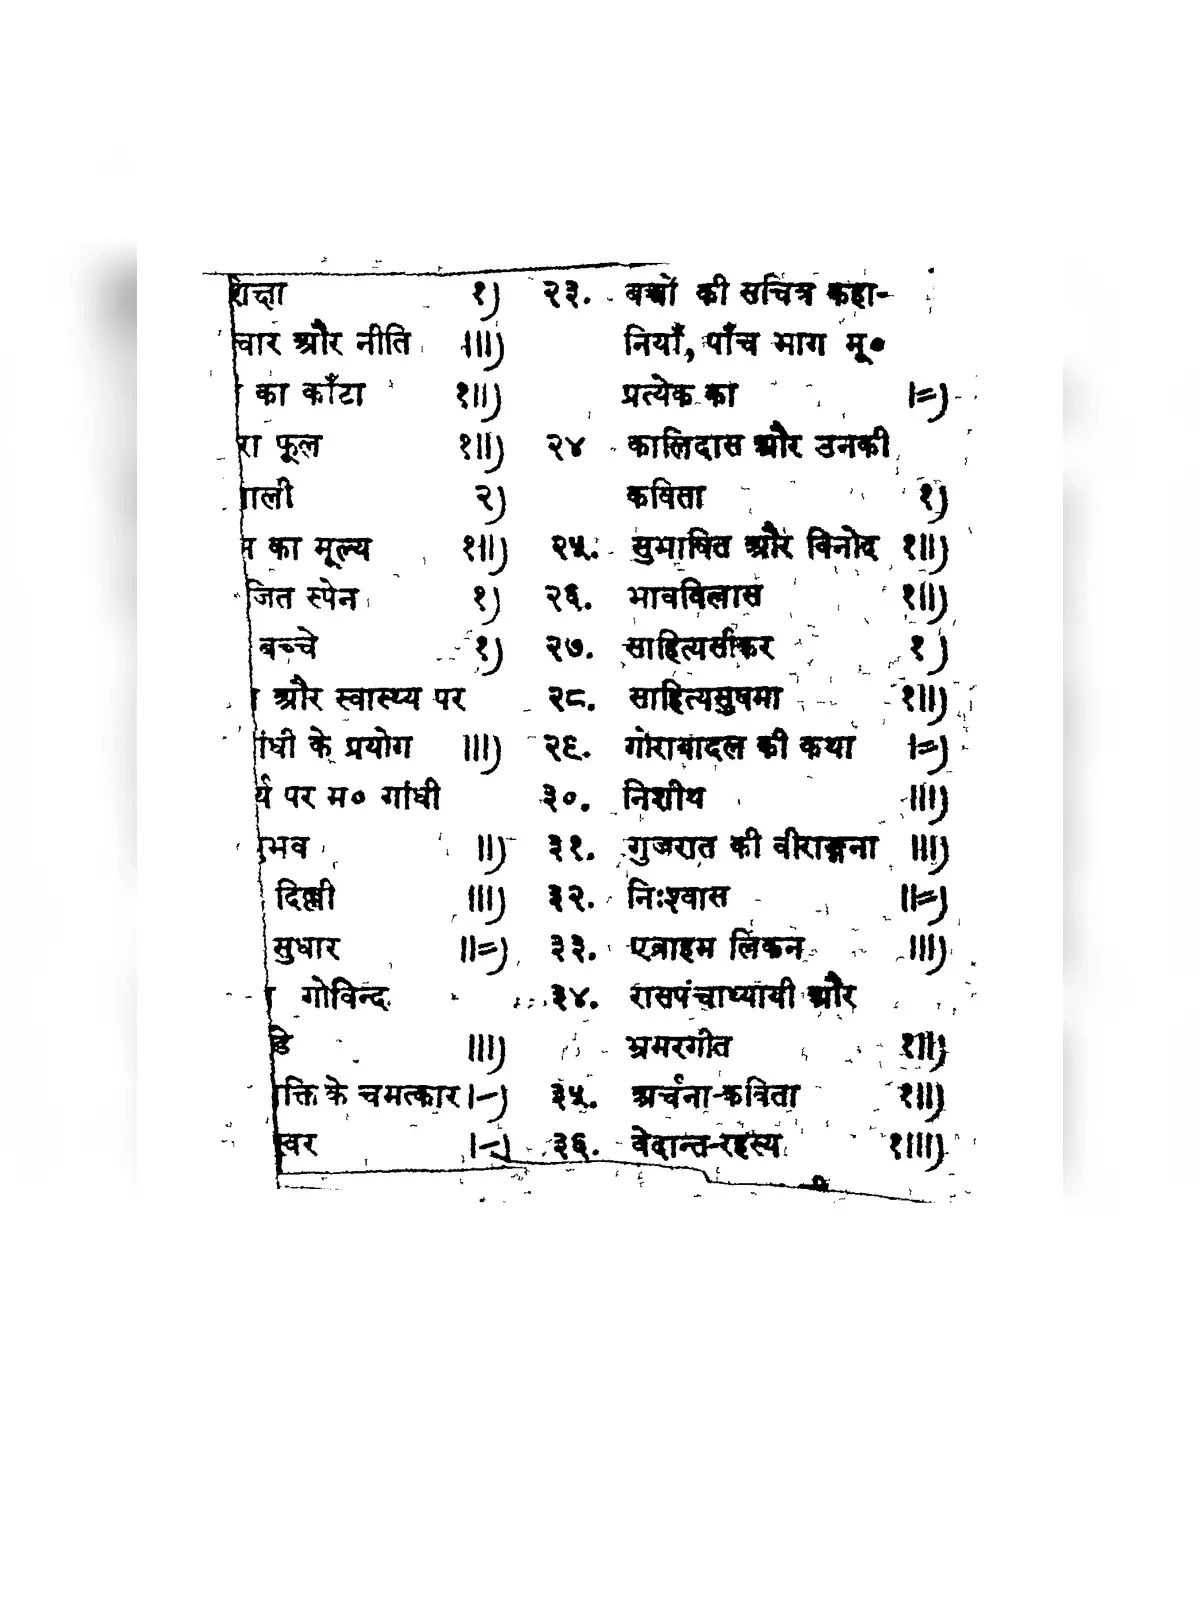 शिक्षा १)
चार और नीति ॥।)
का काँटा १॥)
रा फूल १॥)
ाली २)
का मूल्य १॥)
जित स्पेन १)
बच्चे १)
और स्वास्थ्य पर
ांधी के प्रयोग ॥।)
र्य पर म० गांधी
भव ॥)
दिल्ली ॥।)
सुधार ॥=)
गोविन्द
॥।)
क्ति के चमत्कार ।-)
श्वर ।-)
२३. बच्चों की सचित्र कहा-
नियाँ, पाँच भाग मू०
प्रत्येक का ।=)
२४ कालिदास और उनकी
कविता १)
२५. सुभाषित और विनोद १॥)
२६. भावविलास १॥)
२७. साहित्यसीकर १)
२८. साहित्यसुषमा १॥)
२९. गोराबादल की कथा ।=)
३०. निशीथ ॥।)
३१. गुजरात की वीराङ्गना ॥।)
३२. निःश्वास ॥=)
३३. एब्राहम लिंकन ॥।)
३४. रासपंचाध्यायी और
भ्रमरगीत १॥)
३५. अर्चना-कविता १॥)
३६. वेदान्त-रहस्य १॥।)